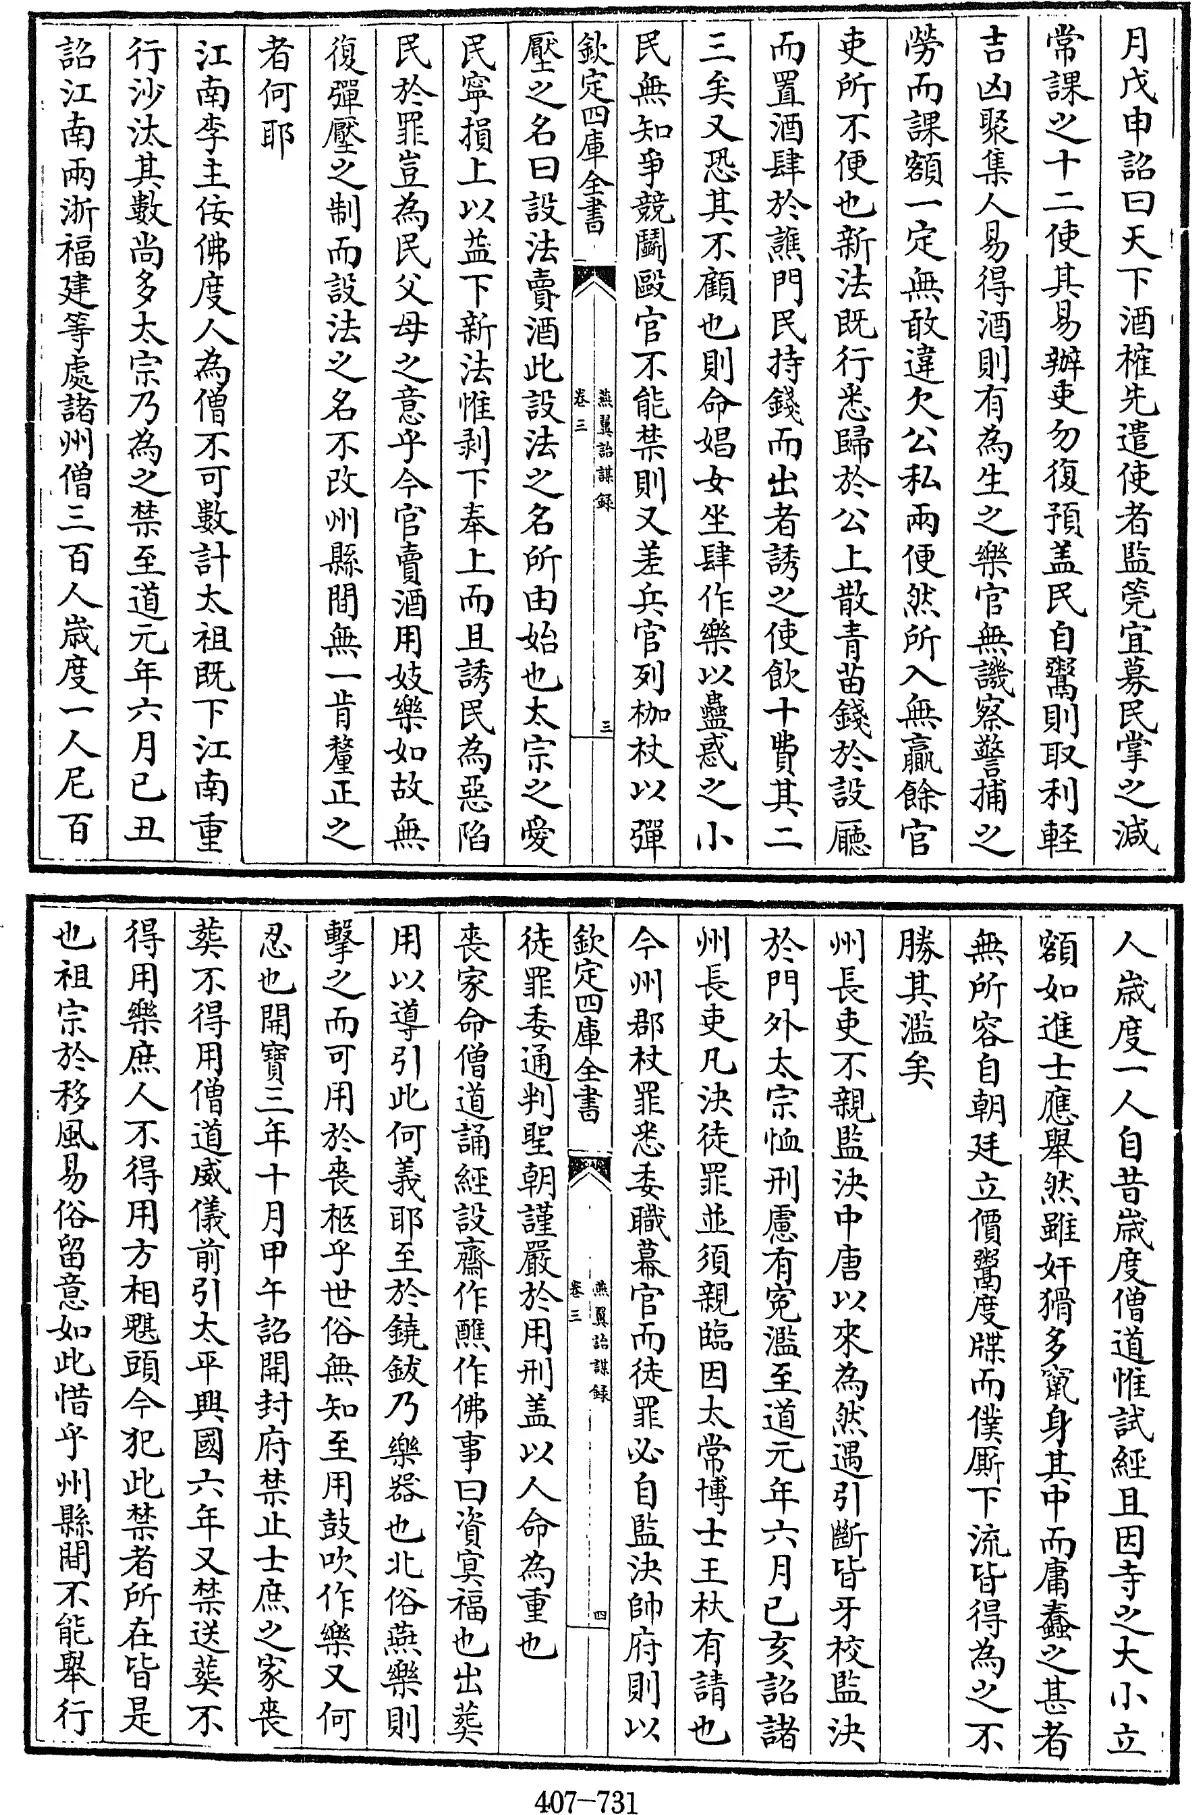 月戊申詔曰天下酒榷先遣使者監筦宜募民掌之減
常課之十二使其易辦吏勿復預盖民自鬻則取利輕
吉凶聚集人易得酒則有為生之樂官無譏察警捕之
勞而課額一定無敢違欠公私兩便然所入無贏餘官
吏所不便也新法既行悉歸於公上散青苗錢於設廳
而置酒肆於譙門民持錢而出者誘之使飲十費其二
三矣又恐其不顧也則命娼女坐肆作樂以蠱惑之小
民無知爭競鬭毆官不能禁則又差兵官列枷杖以彈
欽定四庫全書
燕翼詒謀録
卷三
三
壓之名曰設法賣酒此設法之名所由始也太宗之愛
民寧損上以益下新法惟剥下奉上而且誘民為惡陷
民於罪豈為民父母之意乎今官賣酒用妓樂如故無
復彈壓之制而設法之名不改州縣間無一肯釐正之
者何耶
江南李主佞佛度人為僧不可數計太祖既下江南重
行沙汰其數尚多太宗乃為之禁至道元年六月已丑
詔江南兩浙福建等處諸州僧三百人歳度一人尼百
人歳度一人自昔歳度僧道惟試經且因寺之大小立
額如進士應舉然雖奸猾多竄身其中而庸蠢之甚者
無所容自朝廷立價鬻度牒而僕厮下流皆得為之不
勝其濫矣
州長吏不親監決中唐以來為然遇引斷皆牙校監決
於門外太宗恤刑慮有寃濫至道元年六月已亥詔諸
州長吏凡決徒罪並須親臨因太常博士王杕有請也
今州郡杖罪悉委職幕官而徒罪必自監決帥府則以
欽定四庫全書
燕翼詒謀録
卷三
四
徒罪委通判聖朝謹嚴於用刑盖以人命為重也
喪家命僧道誦經設齋作醮作佛事曰資冥福也出葬
用以導引此何義耶至於鐃鈸乃樂器也北俗燕樂則
擊之而可用於喪柩乎世俗無知至用鼓吹作樂又何
忍也開寶三年十月甲午詔開封府禁止士庶之家喪
葬不得用僧道威儀前引太平興國六年又禁送葬不
得用樂庶人不得用方相魌頭今犯此禁者所在皆是
也祖宗於移風易俗留意如此惜乎州縣間不能舉行
407-731